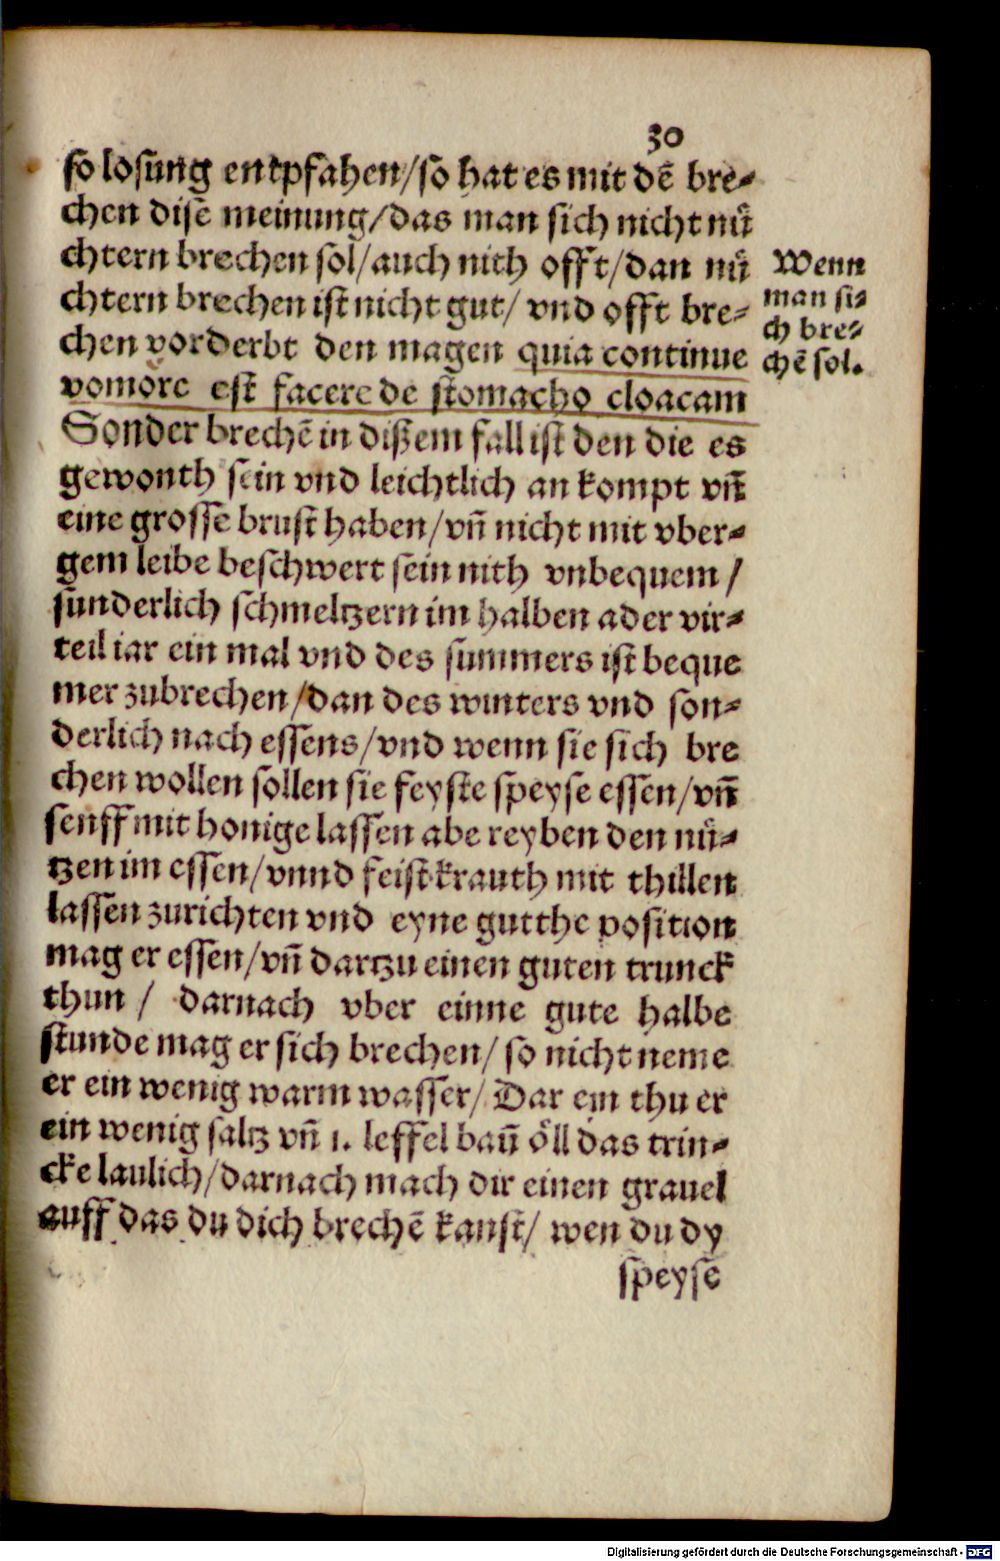 30
so losung entpfahen/so hat es mit dē bre⸗
chen disē meinung/das man sich nicht nuͤ
chtern brechen sol/auch nith offt/dan nuͤ
chtern brechen ist nicht gut/ vnd offt bre⸗
chen vorderbt den magen quia continue
vomore est facere de stomacho cloacam
Sonder brechē in dißem fall ist den die es
gewonth sein vnd leichtlich an kompt vn̄
eine grosse brust haben/vn̄ nicht mit vber⸗
gem leibe beschwert sein nith vnbequem /
sunderlich schmeltzern im halben ader vir⸗
teil iar ein mal vnd des summers ist beque
mer zubrechen/dan des winters vnd son⸗
derlich nach essens/vnd wenn sie sich bre
chen wollen sollen sie feyste speyse essen/vn̄
senff mit honige lassen abe reyben den nuͤ⸗
tzen im essen/vnnd feist krauth mit thillen
lassen zurichten vnd eyne gutthe position
mag er essen/vn̄ dartzu einen guten trunck
thun / darnach vber einne gute halbe
stunde mag er sich brechen/ so nicht neme
er ein wenig warm wasser/ Dar ein thu er
ein wenig saltz vn̄ 1. leffel baū oͤll das trin⸗
cke laulich/darnach mach dir einen grauel
auff das du dich brechē kanst/ wen du dy
speyse
Wenn
man si⸗
ch bre⸗
chē sol.
Digitalisierung gefördert durch die Deutsche Forschungsgemeinschaft - DFG